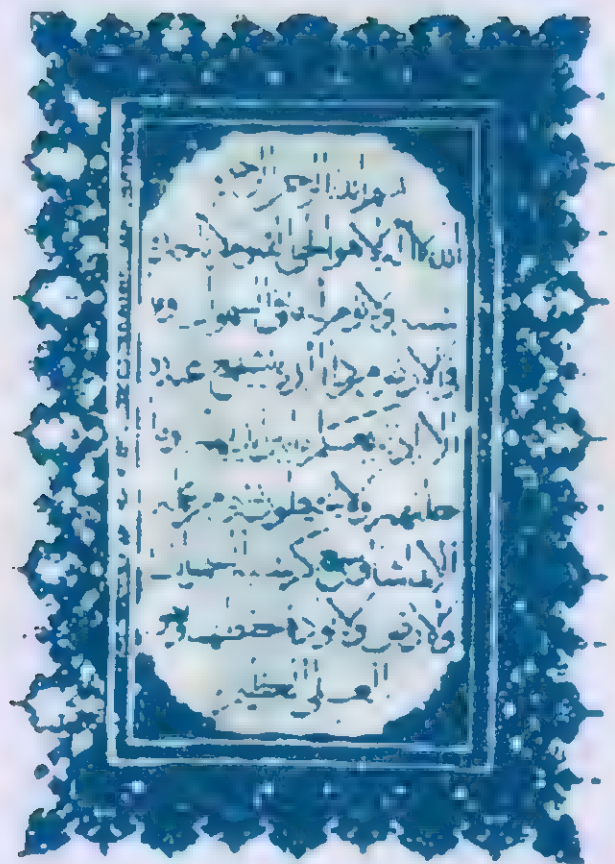 بسم الله الرحمن الرحيم
الله لا اله الا هو الحي القيوم لا تاخذه
سنة ولا نوم له ما في السموت وما
في الارض من ذا الذي يشفع عنده
الا باذنه يعلم ما بين ايديهم وما
خلفهم ولا يحيطون بشيء من علمه
الا بما شاء وسع كرسيه السموت
والارض ولا يوده حفظهما وهو
العلي العظيم